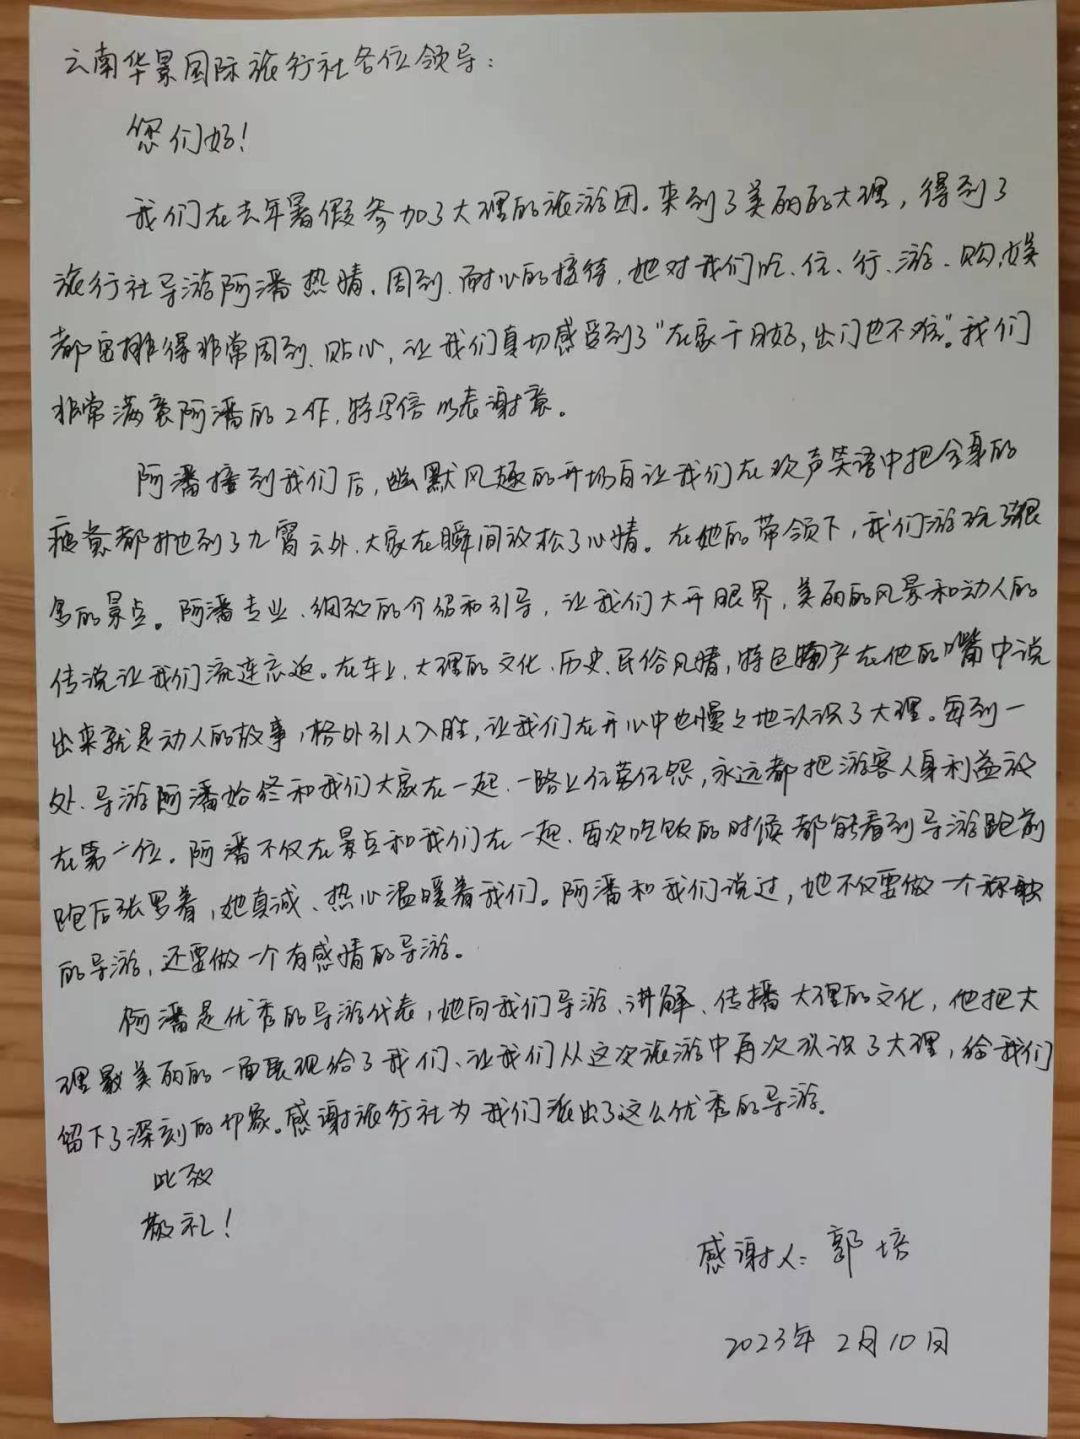 云南华景国际旅行社各位领导：
您们好！
我们在去年暑假参加了大理的旅游团。来到了美丽的大理，得到了
旅行社导游阿潘热情、周到、耐心的接待，她对我们吃、住、行、游、购、娱
都安排得非常周到、贴心，让我们真切感受到了"在家千日好，出门也不难"。我们
非常满意阿潘的工作，特写信以表谢意。
阿潘接到我们后，幽默风趣的开场白让我们在欢声笑语中把全身的
疲惫都抛到了九霄云外，大家在瞬间放松了心情。在她的带领下，我们游玩了很
多的景点。阿潘专业、细致的介绍和引导，让我们大开眼界，美丽的风景和动人的
传说让我们流连忘返。在车上，大理的文化、历史、民俗风情，特色物产在他的嘴中说
出来就是动人的故事，格外引人入胜，让我们在开心中也慢慢地认识了大理。每到一
处，导游阿潘始终和我们大家在一起，一路上任劳任怨，永远都把游客人身利益放
在第一位。阿潘不仅在景点和我们在一起，每次吃饭的时候都能看到导游跑前
跑后张罗着，她真诚、热心温暖着我们。阿潘和我们说过，她不仅要做一个称职
的导游，还要做一个有感情的导游。
阿潘是优秀的导游代表，她向我们导游、讲解、传播大理的文化，他把大
理最美丽的一面展现给了我们、让我们从这次旅游中再次认识了大理，给我们
留下了深刻的印象。感谢旅行社为我们派出了这么优秀的导游.
此致
敬礼！
感谢人：郭培
2023年2月10日